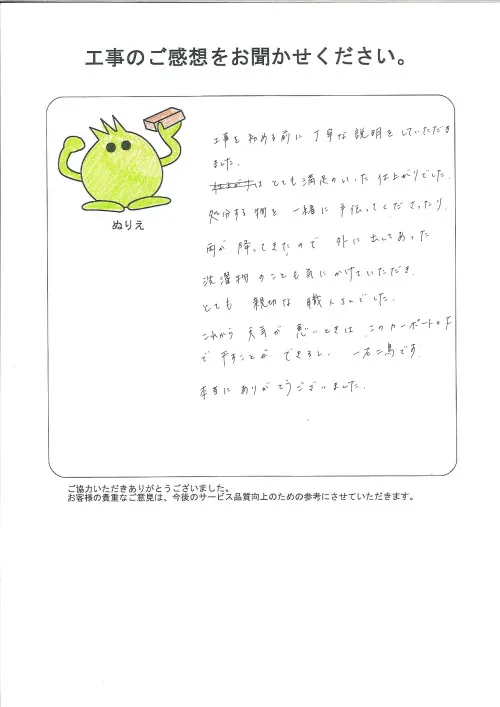 工事のご感想をお聞かせください。
工事を始める前に丁寧な説明をしていただき
ました。
はとても満足のいった仕上がりでした。
処分する物を一緒に手伝ってくださったり、
雨が降ってきたので外に出してあった
洗濯物のことも気にかけていただき、
とても親切な職人さんでした。
これから天気が悪いときは、このカーポートの下
で干すことができるし、一石二鳥です。
本当にありがとうございました。
ぬりえ
ご協力いただきありがとうございました。
お客様の貴重なご意見は、今後のサービス品質向上のための参考にさせていただきます。